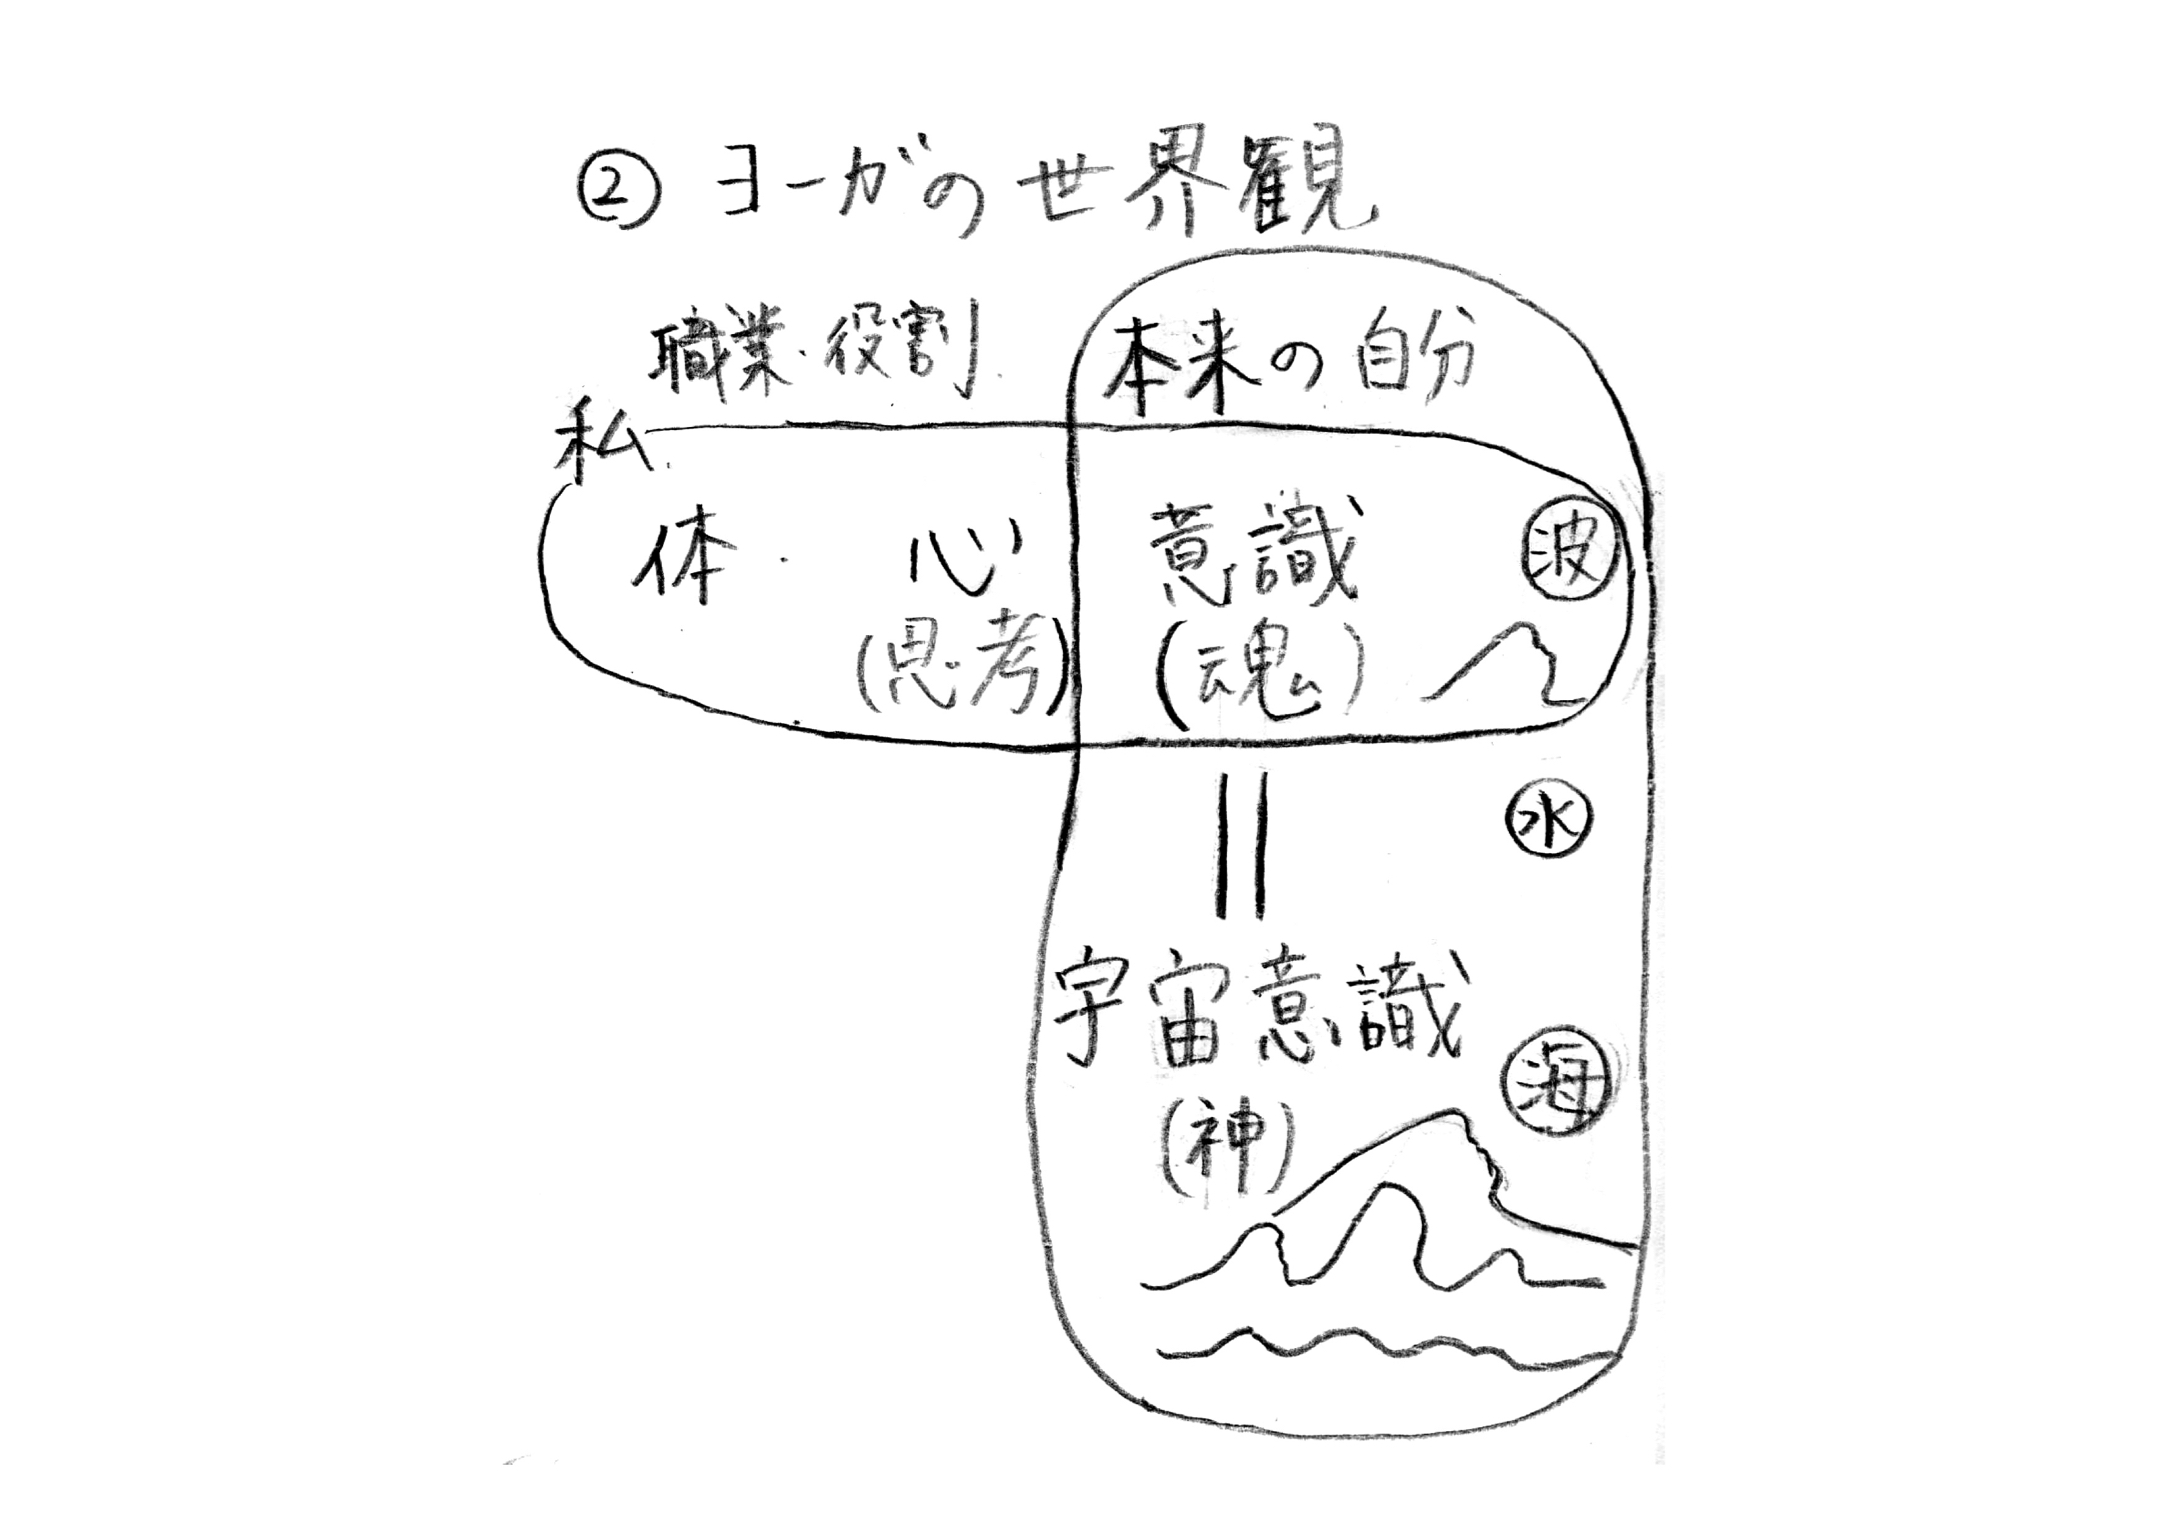 ② ヨーガの世界観
職業・役割 本来の自分
私
体・心 意識 波
(思考) (魂)
水
宇宙意識
海
(神)